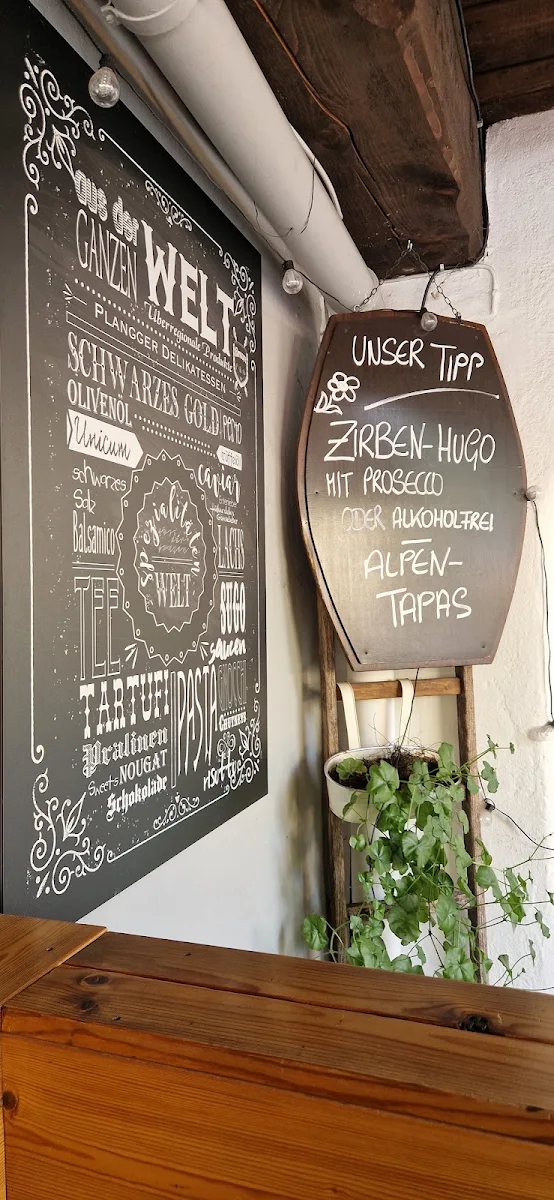 aus der
GANZEN
WELT
Überregionale Produkte
PLANGGER DELIKATESSEN
SCHWARZES GOLD
OLIVENÖL
Unicum
schwarzes
Salz
Balsamico
caviar
Spezialitäten
WELT
LACHS
TEE
SUGO
saucen
TARTUFI
PASTA
GNOCCHI
CHUTNEYS
Pralinen
Sweets NOUGAT
Schokolade
risotto
UNSER TIPP
ZIRBEN-HUGO
MIT PROSECCO
ODER ALKOHOLFREI
ALPEN-
TAPAS